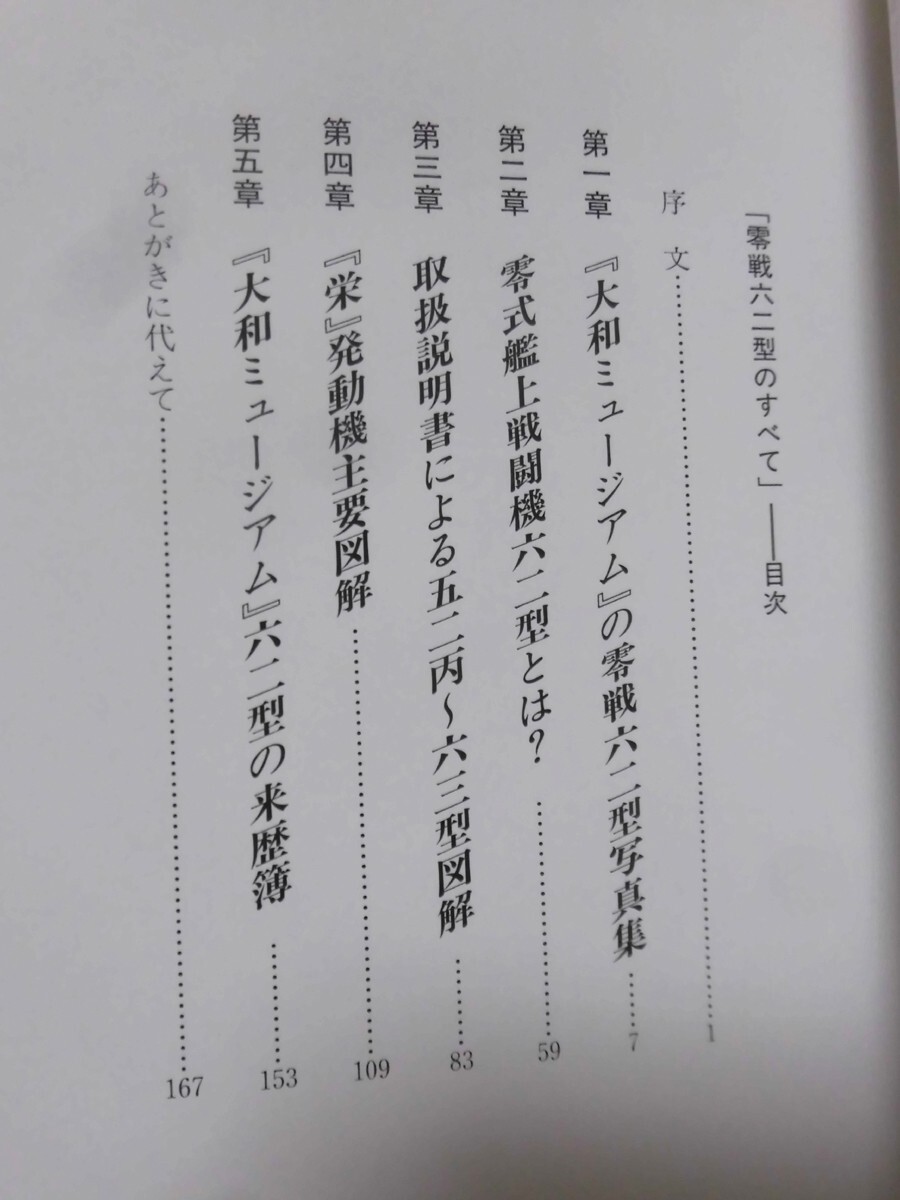 「零戦六二型のすべて」――目次
序文……………………………………1
第一章 『大和ミュージアム』の零戦六二型写真集……7
第二章 零式艦上戦闘機六二型とは？……………59
第三章 取扱説明書による五二丙～六三型図解……83
第四章 『栄』発動機主要図解……………………109
第五章 『大和ミュージアム』六二型の来歴簿………153
あとがきに代えて……………………………………167